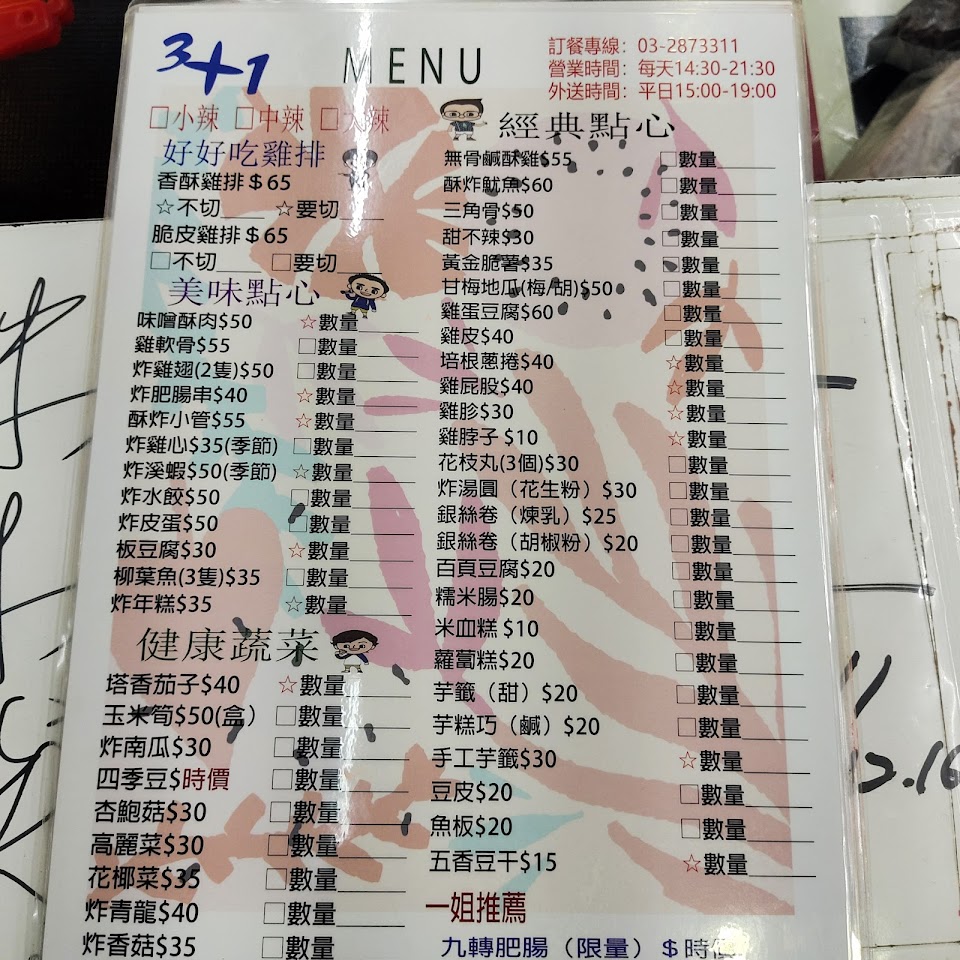 3+1
MENU
訂餐專線：03-2873311
營業時間：每天14:30-21:30
外送時間：平日15:00-19:00
□小辣 □中辣 □大辣
好好吃雞排
香酥雞排＄65
☆不切____ ☆要切____
脆皮雞排＄65
□不切____ □要切____
美味點心
味噌酥肉$50 ☆數量______
雞軟骨$55 □數量______
炸雞翅(2隻)$50 □數量______
炸肥腸串$40 ☆數量______
酥炸小管$55 ☆數量______
炸雞心$35(季節) □數量______
炸溪蝦$50(季節) ☆數量______
炸水餃$50 □數量______
炸皮蛋$50 □數量______
板豆腐$30 ☆數量______
柳葉魚(3隻)$35 □數量______
炸年糕$35 ☆數量______
健康蔬菜
塔香茄子$40 ☆數量______
玉米筍$50(盒） □數量______
炸南瓜$30 □數量______
四季豆$時價 □數量______
杏鮑菇$30 □數量______
高麗菜$30 □數量______
花椰菜$35 □數量______
炸青龍$40 □數量______
炸香菇$35 □數量
經典點心
無骨鹹酥雞$55 □數量______
酥炸魷魚$60 □數量______
三角骨$50 □數量______
甜不辣$30 □數量______
黃金脆薯$35 □數量______
甘梅地瓜(梅/胡)$50 □數量______
雞蛋豆腐$60 □數量______
雞皮$40 □數量______
培根蔥捲$40 ☆數量______
雞屁股$40 ☆數量______
雞胗$30 ☆數量______
雞脖子$10 ☆數量______
花枝丸(3個)$30 □數量______
炸湯圓（花生粉）$30 □數量______
銀絲卷（煉乳）$25 □數量______
銀絲卷（胡椒粉）$20 □數量______
百頁豆腐$20 □數量______
糯米腸$20 □數量______
米血糕$10 □數量______
蘿蔔糕$20 □數量______
芋籤（甜）$20 □數量______
芋糕巧（鹹）$20 □數量______
手工芋籤$30 ☆數量______
豆皮$20 □數量______
魚板$20 □數量______
五香豆干$15 ☆數量______
一姐推薦
九轉肥腸（限量）＄時價